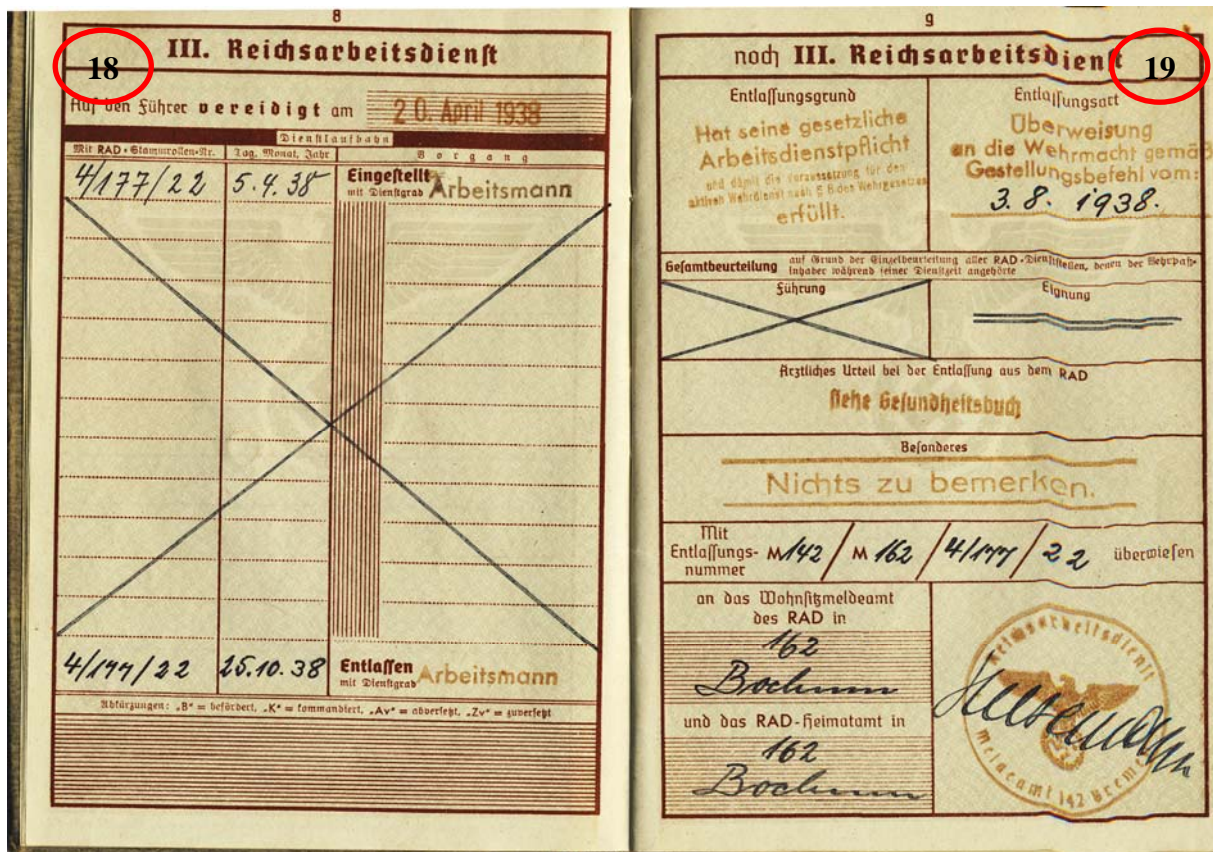 8
18
III. Reichsarbeitsdienst
Auf den Führer vereidigt am 20. April 1938
Dienstlaufbahn
Mit RAD-Stammrollen-Nr.
Tag, Monat, Jahr
Vorgang
4/177/22
5.4.38
Eingestellt
mit Dienstgrad Arbeitsmann
4/177/22
25.10.38
Entlassen
mit Dienstgrad Arbeitsmann
Abkürzungen: „B“ = befördert, „K“ = kommandiert, „Av“ = abversetzt, „Zv“ = zuversetzt
9
noch III. Reichsarbeitsdienst
19
Entlassungsgrund
Hat seine gesetzliche
Arbeitsdienstpflicht
und damit die Voraussetzung für den
aktiven Wehrdienst nach § 8 des Wehrgesetzes
erfüllt.
Entlassungsart
Überweisung
an die Wehrmacht gemäß
Gestellungsbefehl vom:
3. 8. 1938.
Gesamtbeurteilung auf Grund der Einzelbeurteilung aller RAD-Dienststellen, denen der Wehrpaß-
Inhaber während seiner Dienstzeit angehörte
Führung
Eignung
Ärztliches Urteil bei der Entlassung aus dem RAD
siehe Gesundheitsbuch
Besonderes
Nichts zu bemerken.
Mit
Entlassungs-
nummer
M142 / M 162 / 4/177 / 22 überwiesen
an das Wohnsitzmeldeamt
des RAD in
162
Bochum
und das RAD-Heimatamt in
162
Bochum
Reichsarbeitsdienst
Meldeamt 142 Bremen